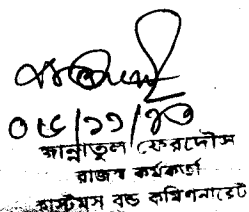 ০৫/১১/২০
জান্নাতুল ফেরদৌস
রাজস্ব কর্মকর্তা
কাস্টমস বন্ড কমিশনারেট